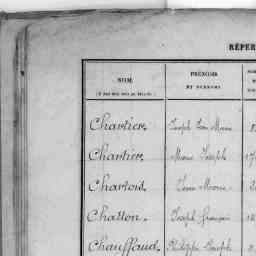 RÉPER
NOM
PRÉNOMS
ET SURNOMS
Chartier. Joseph Jean Marie
Chartier. Marie Joseph
Chartois. Jean Marie
Chasson. Joseph François
Chauffaud. Philippe Joseph